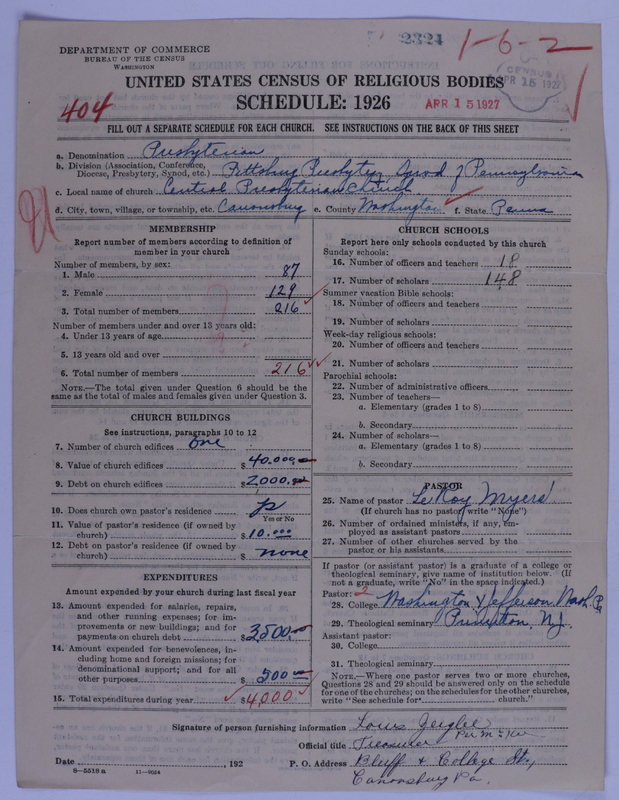 2324
1-6-2
DEPARTMENT OF COMMERCE
BUREAU OF THE CENSUS
WASHINGTON
UNITED STATES CENSUS OF RELIGIOUS BODIES
SCHEDULE: 1926
CENSUS
APR 15 1927
APR 15 1927
404
FILL OUT A SEPARATE SCHEDULE FOR EACH CHURCH. SEE INSTRUCTIONS ON THE BACK OF THIS SHEET
a. Denomination Presbyterian
b. Division (Association, Conference, Diocese, Presbytery, Synod, etc.) Pittsburg Presbytery Synod of Pennsylvania
c. Local name of church Central Presbyterian Church
d. City, town, village, or township, etc. Canonsburg e. County Washington f. State Penna
MEMBERSHIP
Report number of members according to definition of
member in your church
Number of members, by sex:
1. Male 87
2. Female 129
3. Total number of members 216
Number of members under and over 13 years old:
4. Under 13 years of age
5. 13 years old and over
6. Total number of members 216
NOTE.—The total given under Question 6 should be the
same as the total of males and females given under Question 3.
CHURCH BUILDINGS
See instructions, paragraphs 10 to 12
7. Number of church edifices One
8. Value of church edifices $40.000
9. Debt on church edifices $2,000
10. Does church own pastor's residence
Yes or No
11. Value of pastor's residence (if owned by
church) $10.000
12. Debt on pastor's residence (if owned by
church) $ none
EXPENDITURES
Amount expended by your church during last fiscal year
13. Amount expended for salaries, repairs,
and other running expenses; for im-
provements or new buildings; and for
payments on church debt $3,500.00
14. Amount expended for benevolences, in-
cluding home and foreign missions; for
denominational support; and for all
other purposes $500.00
15. Total expenditures during year $4,000
CHURCH SCHOOLS
Report here only schools conducted by this church
Sunday schools:
16. Number of officers and teachers 18
17. Number of scholars 148
Summer vacation Bible schools:
18. Number of officers and teachers
19. Number of scholars
Week-day religious schools:
20. Number of officers and teachers
21. Number of scholars
Parochial schools:
22. Number of administrative officers
23. Number of teachers—
a. Elementary (grades 1 to 8)
b. Secondary
24. Number of scholars—
a. Elementary (grades 1 to 8)
b. Secondary
PASTOR
25. Name of pastor LeRoy Myers
(If church has no pastor, write "None")
26. Number of ordained ministers, if any, em-
ployed as assistant pastors
27. Number of other churches served by the
pastor or his assistants
If pastor (or assistant pastor) is a graduate of a college or
theological seminary, give name of institution below. (If
not a graduate, write "No" in the space indicated.)
Pastor: 2
28. College Washington & Jefferson, Wash. Pa
29. Theological seminary Princeton, N.J.
Assistant pastor:
30. College
31. Theological seminary
NOTE.—Where one pastor serves two or more churches,
Questions 28 and 29 should be answered only on the schedule
for one of the churches; on the schedules for the other churches,
write "See schedule for church."
Signature of person furnishing information Louis
Official title Treasurer
Date , 192 P. O. Address Bluff & College St.,
Canonsburg Pa.
8-5518 a 11-9024